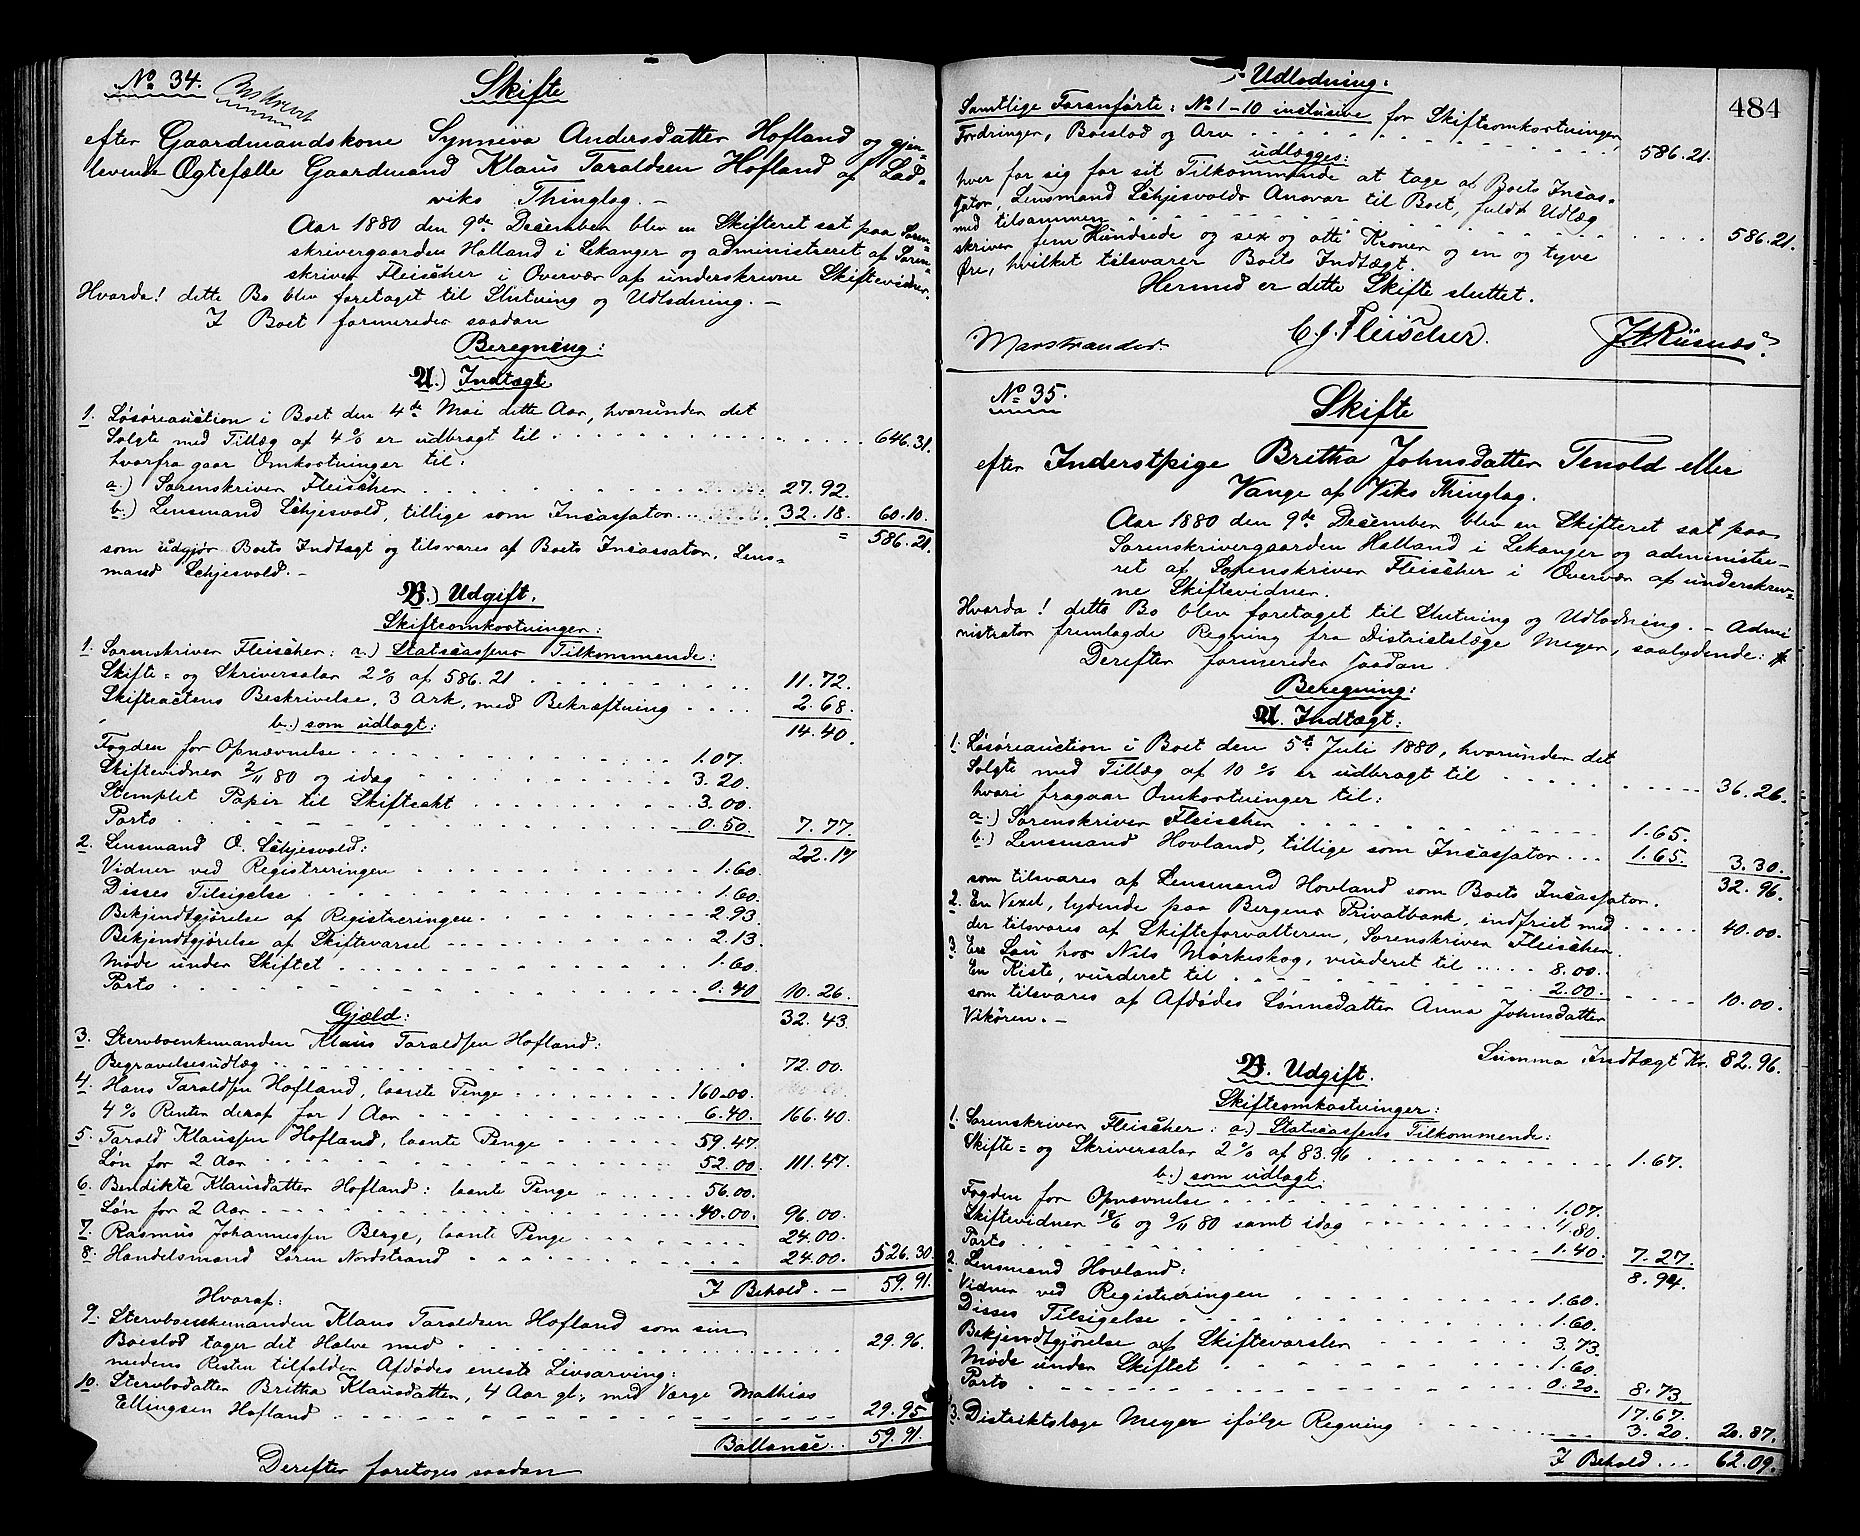 No 34.
Beskrevet
Skifte
efter Gaardmandskone Synneva Andersdatter Hofland og gjen-
levende Ægtefælle Gaardmand Klaus Taraldsen Hofland af Lad-
viks Thinglag. –
Aar 1880 den 9de December blev en Skifteret sat paa Soren-
skrivergaarden Halland i Lekanger og administreret af Soren-
skriver Fleischer i Overvær af underskrevne Skiftevidner.
Hvorda! dette Bo blev foretaget til Slutning og Udlodning. –
I Boet formeredes saadan
Beregning:
A.) Indtægt
1. Løsøreauction i Boet den 4de Mai dette Aar, hvorunder det
Solgte med Tillæg af 4 % er udbragt til . . . . 646.31.
hvorfra gaar Omkostninger til:
a.) Sorenskriver Fleischer . . . . 27.92.
b.) Lensmand Schjesvold, tillige som Incassator . . . 32.18. 60.10.
= 586.21.
som udgjør Boets Indtægt og tilsvares af Boets Incassator, Lens-
mand Schjesvold. –
B.) Udgift.
Skifteomkostninger:
1. Sorenskriver Fleischer: a.) Statscassens Tilkommende:
Skifte- og Skriversalar 2 % af 586.21 . . . . 11.72.
Skifteactens Beskrivelse, 3 Ark, med Bekræftning . . . . 2.68.
b.) som udlagt: 14.40.
Fogden for Opnævnelse . . . . 1.07.
Skiftevidner 2/11 80 og idag . . . . 3.20.
Stemplet Papir til Skifteakt . . . . 3.00.
Porto . . . . 0.50. 7.77.
2. Lensmand O. Schjesvold: 22.17
Vidner ved Registreringen . . . . 1.60.
Disses Tilsigelse . . . . 1.60.
Bekjendtgjørelse af Registreringen . . . . 2.93.
Bekjendtgjørelse af Skiftevarsel . . . . 2.13.
Møde under Skiftet . . . . 1.60.
Porto . . . . 0.40 10.26.
Gjæld: 32.43
3. Stervboenkemanden Klaus Taraldsen Hofland:
Begravelsesudlæg . . . . 72.00.
4. Hans Taraldsen Hofland, laante Penge . . . . 160.00.
4 % Renter deraf for 1 Aar . . . . 6.40. 166.40.
5. Tarald Klaussen Hofland, laante Penge . . . . 59.47.
Løn for 2 Aar . . . . 52.00. 111.47.
6. Bendikte Klausdatter Hofland: laante Penge . . . . 56.00.
Løn for 2 Aar . . . . 40.00. 96.00.
7. Rasmus Johannessen Berge, laante Penge . . . . 24.00.
8. Handelsmand Søren Nordstrand . . . . 24.00. 526.30.
I Behold. – 59.91.
Hvoraf:
9. Stervboenkemanden Klaus Taraldsen Hofland som sin
Boeslod tager det Halve med . . . . 29.96.
medens Resten tilfalder Afdødes eneste Livsarving:
10. Stervbodatter Britha Klausdatter, 4 Aar gl., med Værge Mathias
Ellingsen Hofland . . . . 29.95
Ballance . . 59.91.
Derefter foretoges saadan
484
Udlodning:
Samtlige Foranførte: No 1-10 inclusive for Skifteomkostninger,
Fordringer, Boeslod og Arv . . . . 586.21.
udlægges:
hver for sig for sit Tilkommende at tage af Boets Incas-
sator, Lensmand Schjesvolds Ansvar til Boet, fuldt Udlæg
med tilsammen . . . . 586.21.
skriver fem Hundrede og sex og otti Kroner og en og tyve
Øre, hvilket tilsvarer Boets Indtægt.
Hermed er dette Skifte sluttet.
C. J. Fleischer.
Marstrander.
No 35.
Skifte
efter Inderstpige Britha Johnsdatter Tenold eller
Vange af Viks Thinglag.
Aar 1880 den 9de December blev en Skifteret sat paa
Sorenskrivergaarden Halland i Lekanger og administre-
ret af Sorenskriver Fleischer i Overvær af underskrev-
ne Skiftevidner.
Hvorda! dette Bo blev foretaget til Slutning og Udlodning. – Admi
nistrator fremlagde Regning fra Districtslæge Meyer, saalydende:
Derefter formeredes saadan.
Beregning:
A. Indtægt:
1. Løsøreauction i Boet den 5te Juli 1880, hvorunder det
Solgte med Tillæg af 10 % er udbragt til . . . . 36.26.
hvori fragaar Omkostninger til:
a.) Sorenskriver Fleischer . . . . 1.65.
b.) Lensmand Hovland, tillige som Incassator . . . 1.65. 3.30.
som tilsvares af Lensmand Hovland som Boets Incassator. 32.96.
2. En Vexel, lydende paa Bergens Privatbank, indfriet med . . . . 40.00.
der tilsvares af Skifteforvalteren, Sorenskriver Fleischer.
3. En Sau hos Nils Mørkeskog, vurderet til . . . . 8.00.
En Kiste, vurderet til . . . . 2.00. 10.00.
som tilsvares af Afdødes Sønnedatter Anna Johnsdatter
Vikøren. –
Summa Indtægt Kr. 82.96.
B. Udgift.
Skifteomkostninger:
1. Sorenskriver Fleischer: a.) Statscassens Tilkommende:
Skifte- og Skriversalar 2 % af 83.96 . . . . 1.67.
b.) som udlagt:
Fogden for Opnævnelse . . . . 1.07.
Skiftevidner 18/6 og 9/11 80 samt idag . . . . 4.80.
Porto . . . . 1.40. 7.27.
2. Lensmand Hovland: 8.94.
Vidner ved Registreringen . . . . 1.60.
Disses Tilsigelse . . . . 1.60.
Bekjendtgjørelse af Skiftevarsler . . . . 3.73.
Møde under Skiftet . . . . 1.60.
Porto . . . . 0.20. 8.73
17.67.
3. Distriktslæge Meyer ifølge Regning . . . . 3.20. 20.87.
I Behold . . . 62.09.